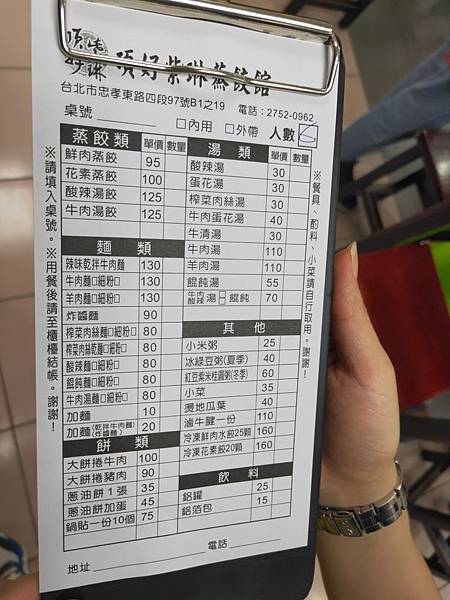 頂好紫琳蒸餃館
台北市忠孝東路四段97號B1之19 電話：2752-0962
桌號 □內用 □外帶 人數 6
※請填入桌號。※用餐後請至櫃檯結帳。謝謝！
蒸餃類 單價 數量
鮮肉蒸餃 95
花素蒸餃 100
酸辣湯餃 125
牛肉湯餃 125
麵類
辣味乾拌牛肉麵 130
牛肉麵□細粉□ 130
羊肉麵□細粉□ 130
炸醬麵 90
榨菜肉絲麵□細粉□ 80
榨菜肉絲乾麵□細粉□ 80
酸辣麵□細粉□ 80
餛飩麵□細粉□ 80
牛肉湯麵□細粉□ 80
加麵 10
加麵(乾拌牛肉麵)(炸醬麵) 20
餅類
大餅捲牛肉 100
大餅捲豬肉 90
蔥油餅1張 35
蔥油餅加蛋 45
鍋貼一份10個 75
湯類 單價 數量
酸辣湯 30
蛋花湯 30
榨菜肉絲湯 30
牛肉蛋花湯 40
牛清湯 30
牛肉湯 110
羊肉湯 110
餛飩湯 55
牛肉酸辣湯□餛飩 70
其他
小米粥 25
冰綠豆粥(夏季) 40
紅豆紫米桂圓粥(冬季) 60
小菜 35
燙地瓜葉 40
滷牛腱一份 110
冷凍鮮肉水餃25顆 160
冷凍花素餃20顆 160
飲料
鋁罐 25
鋁箔包 15
※餐具、酌料、小菜請自行取用。謝謝！
電話
地址